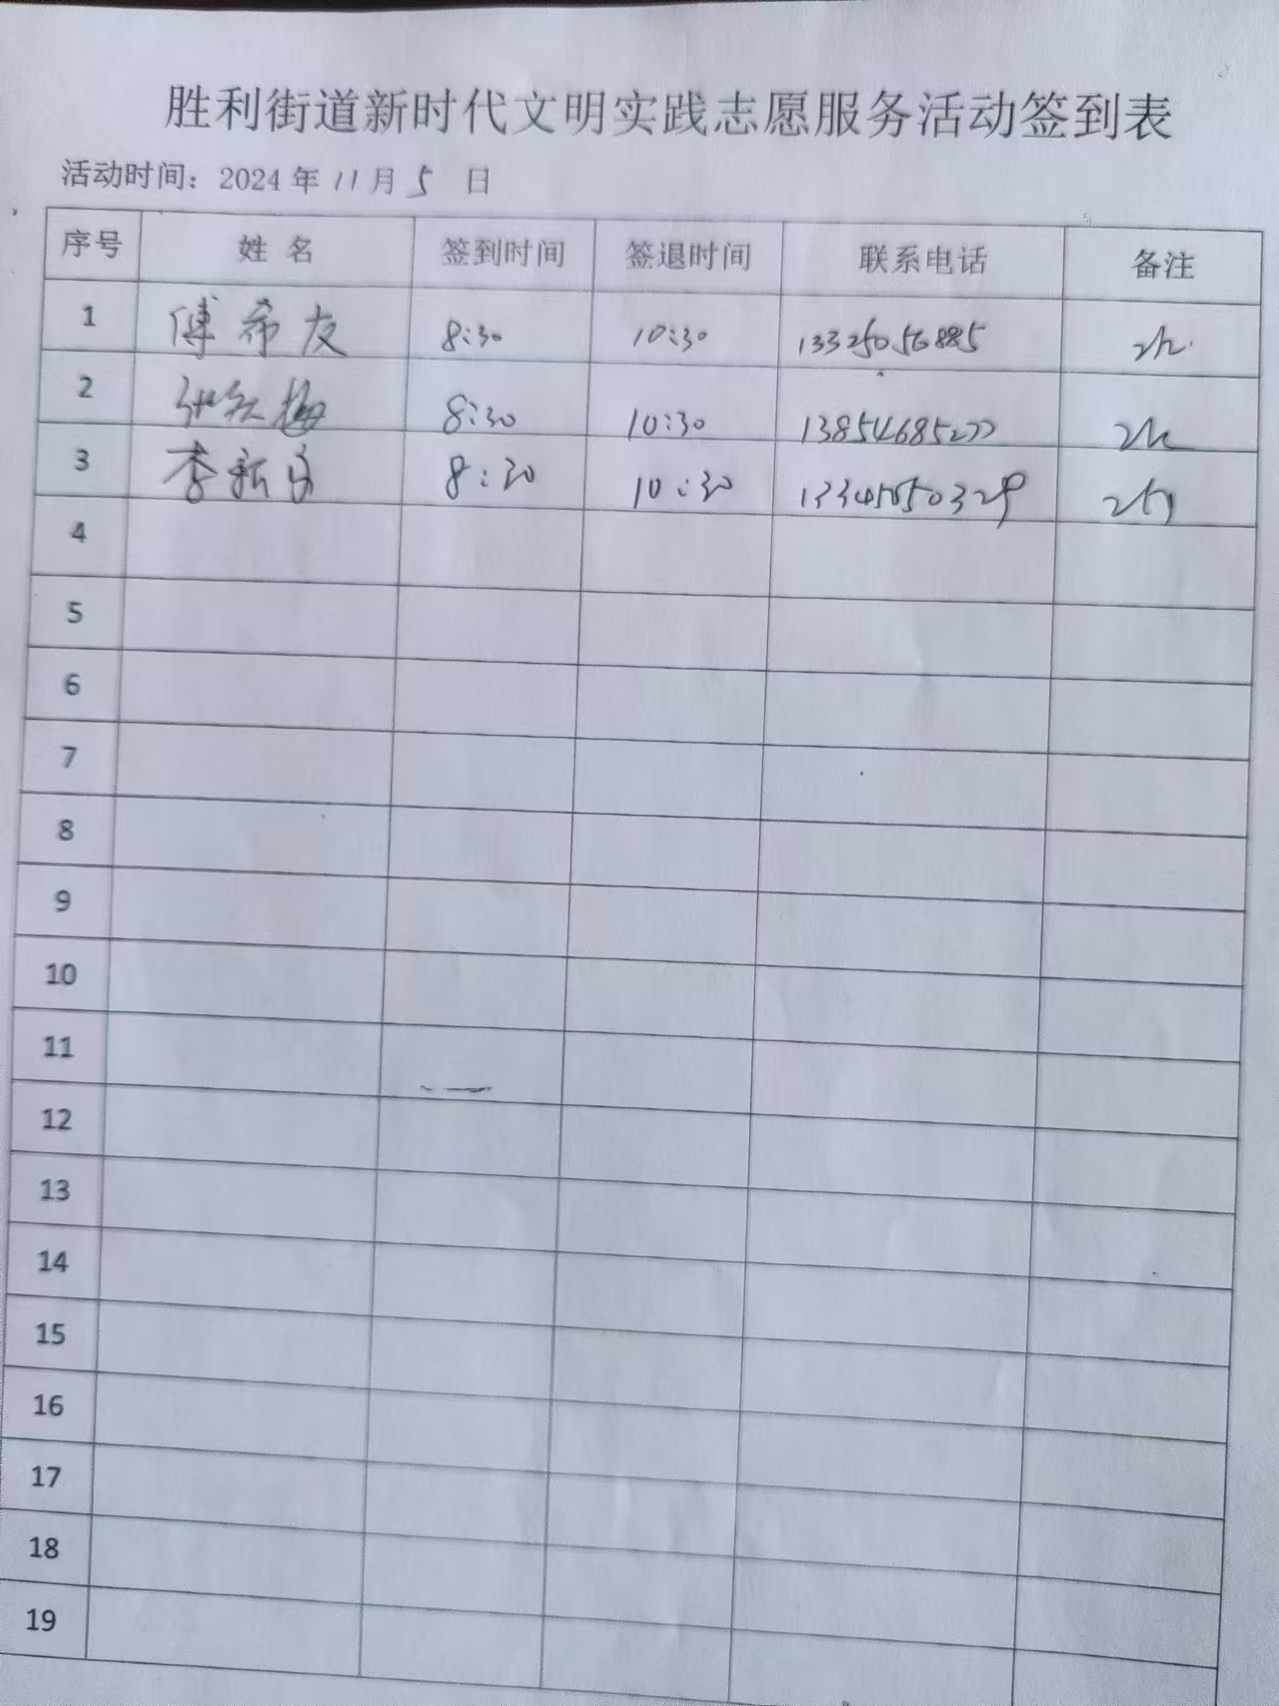 胜利街道新时代文明实践志愿服务活动签到表
活动时间：2024年11月5日
序号 姓名 签到时间 签退时间 联系电话 备注
1 傅希友 8:30 10:30 13325056885 2h.
2 8:30 10:30 13854685277 2h
3 李新 8:30 10:30 2h
4
5
6
7
8
9
10
11
12
13
14
15
16
17
18
19